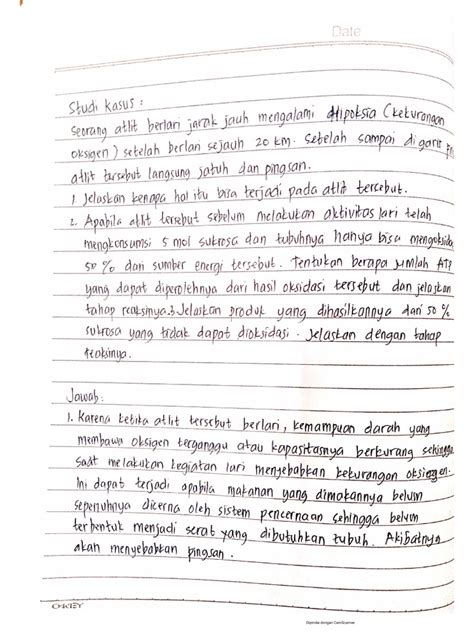 Date
Studi Kasus :
Seorang atlit berlari jarak jauh mengalami Hipoksia (kekurangan
oksigen) setelah berlari sejauh 20 km. Setelah sampai di garis
atlit tersebut langsung jatuh dan pingsan.
1. Jelaskan kenapa hal itu bisa terjadi pada atlit tercebut.
2. Apabila atlit tersebut sebelum melakukan aktivitas lari telah
mengkonsumsi 5 mol sukrosa dan tubuhnya hanya bisa mengoksida
50 % dari sumber energi tersebut. Tentukan berapa jumlah ATP
yang dapat diperolehnya dari hasil oksidasi tersebut dan jelaskan
tahap reaksinya. 3. Jelaskan produk yang dihasilkannya dari 50 %
sukrosa yang tidak dapat dioksidasi. Jelaskan dengan tahap
reaksinya.
Jawab :
1. Karena ketika atlit tersebut berlari, kemampuan darah yang
membawa oksigen terganggu atau kapasitasnya berkurang sehingga
saat melakukan kegiatan lari menyebabkan kekurangan oksigen.
Ini dapat terjadi apabila makanan yang dimakannya belum
sepenuhnya dicerna oleh sistem pencernaan sehingga belum
terbentuk menjadi serat yang dibutuhkan tubuh. Akibatnya
akan menyebabkan pingsan.
Dipindai dengan CamScanner